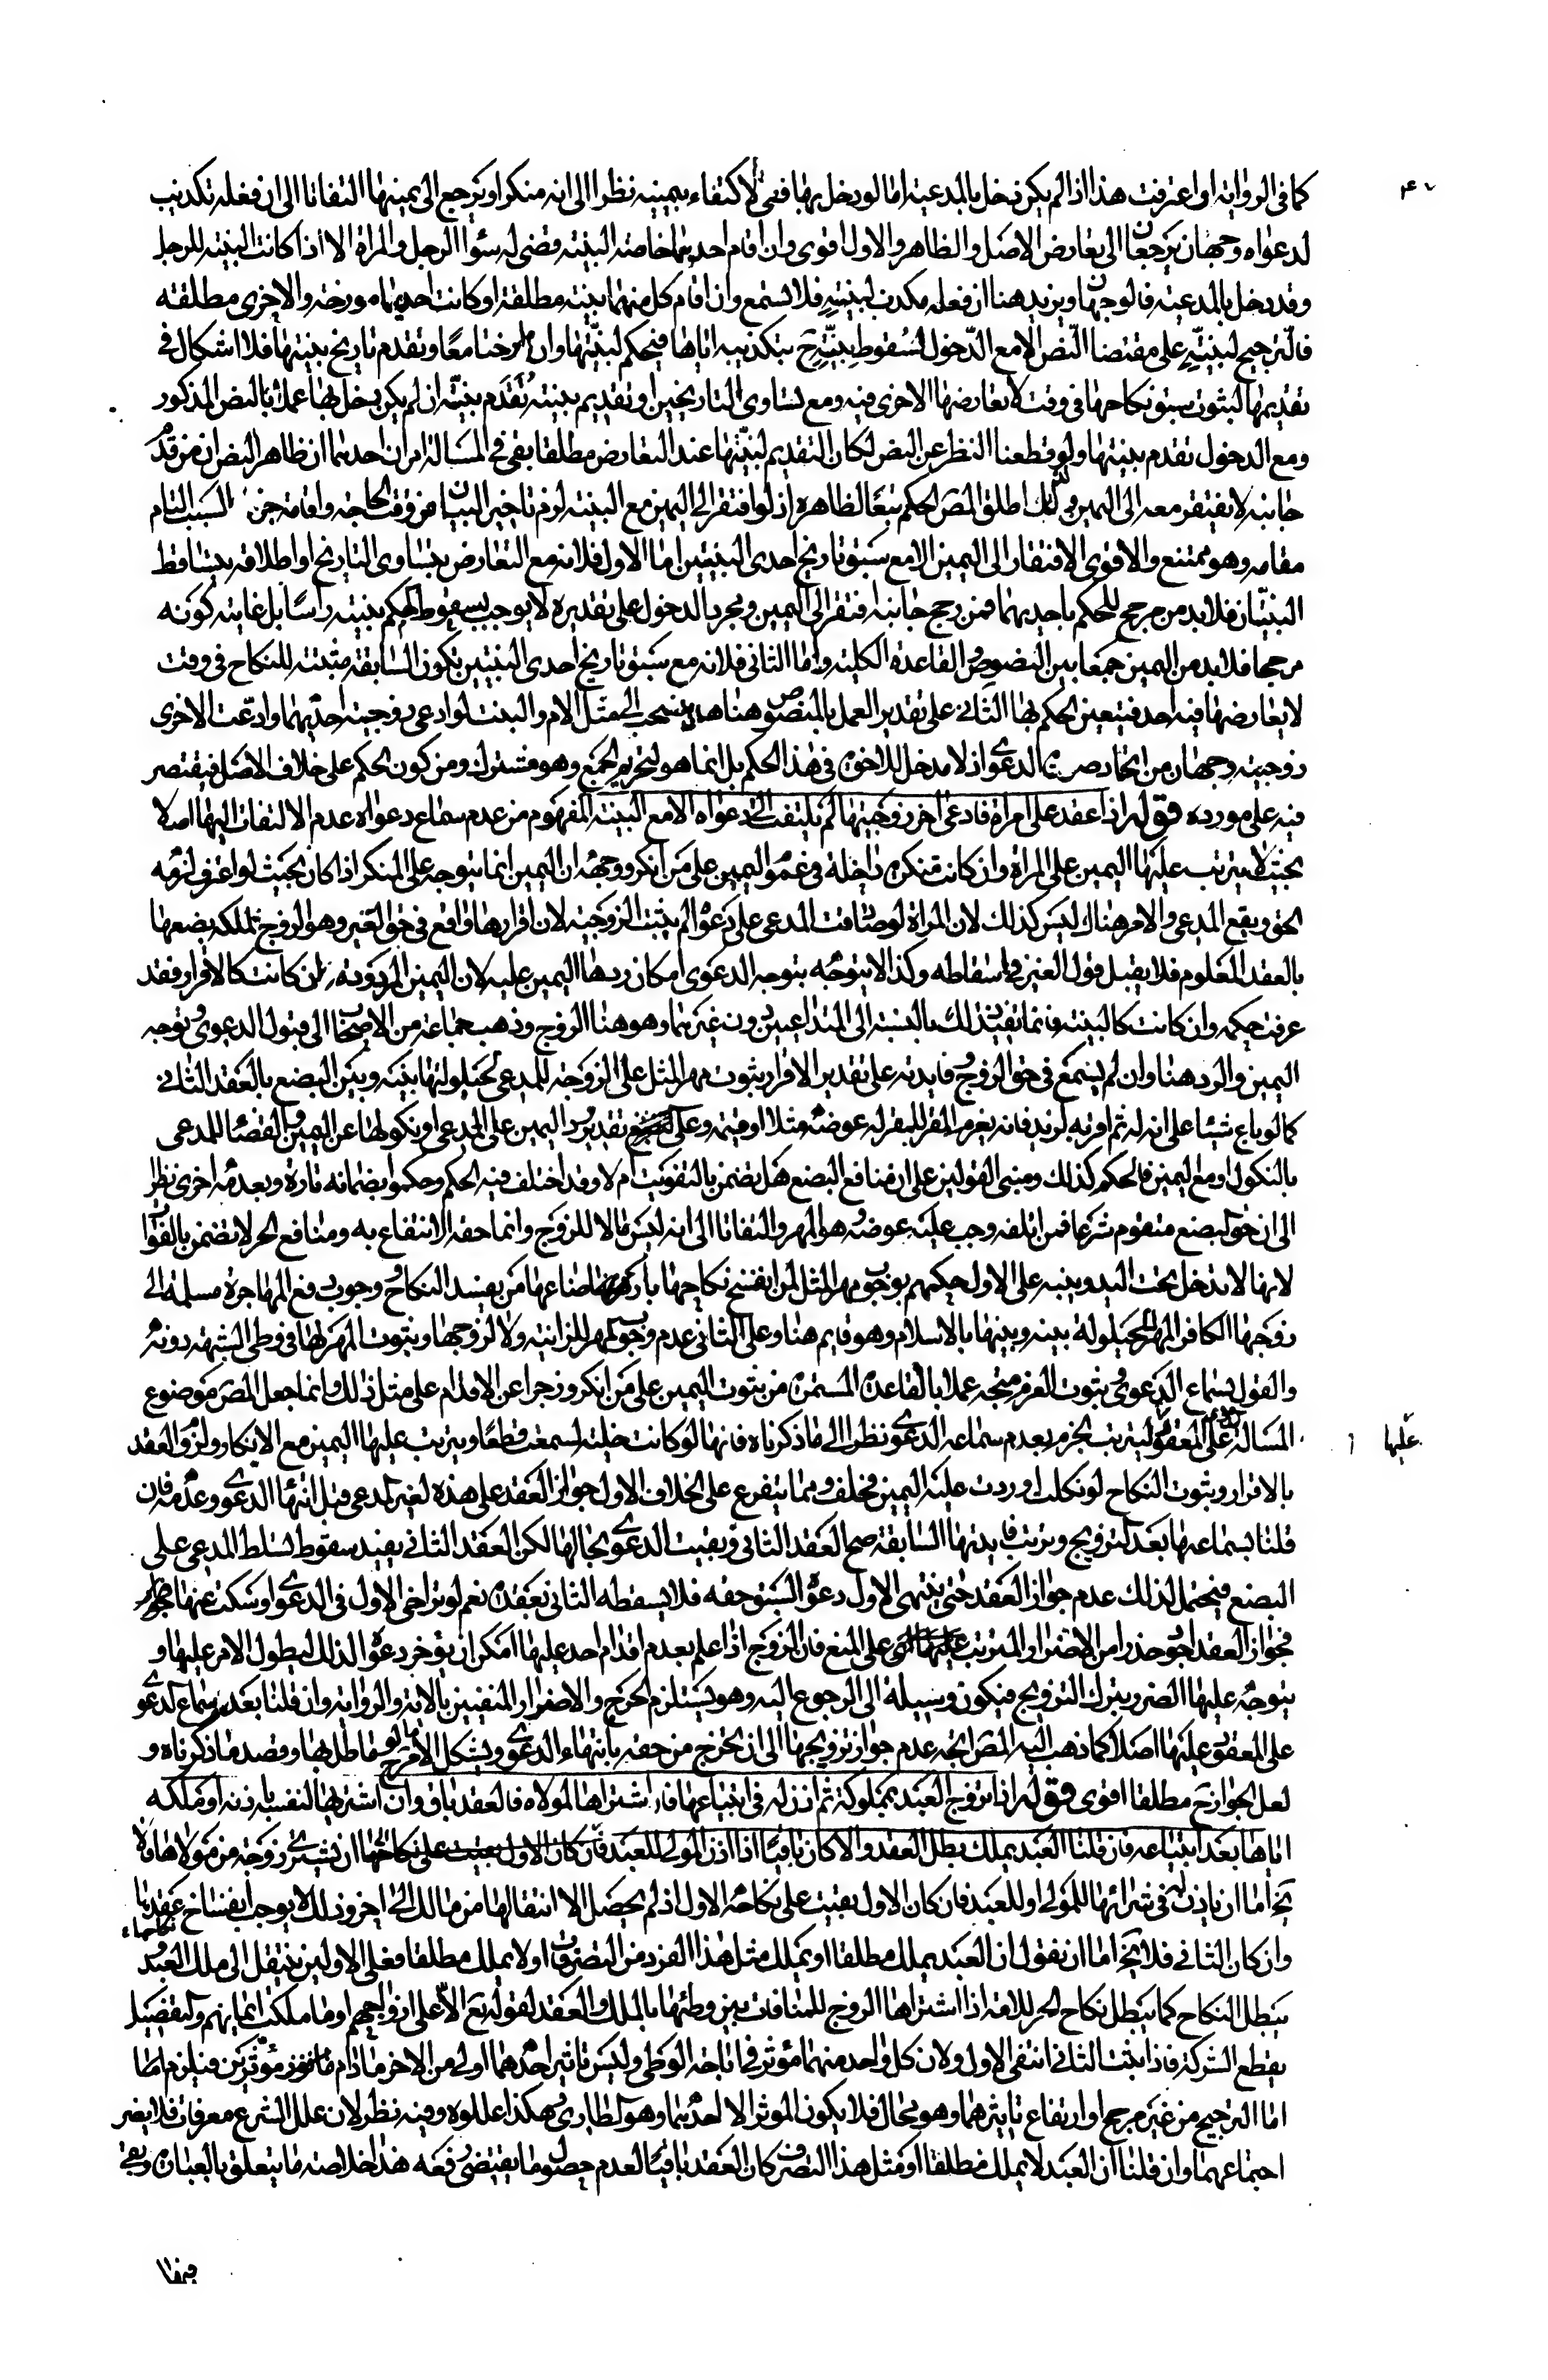 كما فى الرواية او اعترفت هذا اذا لم يكن دخل بالمدعية اما لو دخل بها ففى الاكتفاء بيمينه نظرا الى انه منكر او يرجع الى يمينها التفاتا الى ان فعله تكذيب
لدعواه وجهان يرجعان الى تعارض الاصل والظاهر والاول اقوى وان اقام احدهما خاصة البينة قضى له سواء الرجل والمراة الا اذا كانت البينة للرجل
وقد دخل بالمدعية فالوجهان ويزيد هنا ان فعله مكذب لبينته فلا تسمع وان اقام كل منهما بينة مطلقة او كانت احديهما مورخة والاخرى مطلقة
فالترجيح لبينته على مقتضا النص الا مع الدخول لسقوط بينته ح بتكذيبه اياها فيحكم لبينتها وان ارختا معا وتقدم تاريخ بينتها فلا اشكال فى
تقديمها لثبوت سبق نكاحها فى وقت لا تعارضها الاخرى فيه ومع تساوى التاريخين او تقديم بينته تقدم بينته ان لم يكن دخل بها عملا بالنص المذكور
ومع الدخول تقدم بينتها ولو قطعنا النظر عن النص لكان التقديم لبينتها عند التعارض مطلقا بقى فى المسالة امران احدهما ان ظاهر النص ان من قدم
جانبه لا يفتقر معه الى اليمين وكذلك اطلق المص الحكم تبعا لظاهره اذ لو افتقر الى اليمين مع البينة لزم تاخير البيان عن وقت الحاجة واقامة جزء السبب التام
مقامه وهو ممتنع والاقوى الافتقار الى اليمين الا مع سبق تاريخ احدى البينتين اما الاول فلانه مع التعارض بتساوى التاريخ او اطلاقه يتساقط
البينتان فلا بد من مرجح للحكم باحديهما فمن رجح جانبه افتقر الى اليمين ومجرد الدخول على تقديره لا يوجب سقوط الحكم ببينته راسا بل غايته كونه
مرجحا فلا بد من اليمين جمعا بين النصوص والقاعدة الكلية واما الثانى فلانه مع سبق تاريخ احدى البينتين تكون السابقة مثبتة للنكاح فى وقت
لا يعارضها فيه احد فيتعين الحكم بها الثانى على تقدير العمل بالمنصوص هنا هل ينسحب الى مثل الام والبنت لو ادعى زوجية احديهما وادعت الاخرى
زوجيته وجهان من اتحاد صورة الدعوى اذ لا مدخل للاخوة فى هذا الحكم بل انما هو لتحريم الجمع وهو مشترك ومن كون الحكم على خلاف الاصل فيقتصر
فيه على مورده قوله اذا عقد على امراة فادعى اخر زوجيتها لم يلتفت الى دعواه الا مع البينة المفهوم من عدم سماع دعواه عدم الالتفات اليها اصلا
بحيث لا يترتب عليها اليمين على المراة وان كانت منكرة داخلة فى عموم اليمين على من انكر ووجهه ان اليمين انما يتوجه على المنكر اذا كان بحيث لو اعترف لزمه
الحق ونفع المدعى والامر هنا ليس كذلك لان المراة لو صادقت المدعى على دعواه لم يثبت الزوجية لان اقرارها واقع فى حق الغير وهو الزوج لملكه بضعها
بالعقد المعلوم فلا يقبل قول الغير فى اسقاطه وكذا لا يتوجه بتوجه الدعوى امكان ردها اليمين عليه لان اليمين المردودة ان كانت كالاقرار فقد
عرفت حكمه وان كانت كالبينة فانما تفيد ذلك بالنسبة الى المتداعيين دون غيرهما وهو هنا الزوج وذهب جماعة من الاصحاب الى قبول الدعوى وتوجه
اليمين والرد هنا وان لم يسمع فى حق الزوج وفايدته على تقدير الاقرار ثبوت مهر المثل على الزوجة للمدعى لحيلولتها بينه وبين البضع بالعقد الثانى
كما لو باع شيئا على انه له ثم اقر به لزيد فانه يغرم المقر للمقر له عوضه مثلا او قيمة وعلى تقدير رد اليمين على المدعى او نكولها عن اليمين والقضاء للمدعى
بالنكول او مع اليمين فالحكم كذلك ومبنى القولين على ان منافع البضع هل تضمن بالتفويت ام لا وقد اختلف فيه الحكم وحكموا بضمانه تارة وبعدمه اخرى نظرا
الى ان حق البضع متقوم شرعا فمن اتلفه وجب عليه عوضه وهو المهر والتفاتا الى انه ليس مالا للزوج وانما حقه الانتفاع به ومنافع الحر لا تضمن بالفوات
لانها لا تدخل تحت اليد وينبه على الاول حكمهم بوجوب مهر المثل لمن انفسخ نكاحها بارضاعها من يفسد النكاح ووجوب دفع المهاجرة مسلمة الى
زوجها الكافر المهر للحيلولة بينه وبينها بالاسلام وهو قايم هنا وعلى الثانى عدم وجوب المهر للزانية ولا لزوجها وثبوت المهر لها فى وطى الشبهة دونه
والقول بسماع الدعوى وثبوت الغرم متجه عملا بالقاعدة المستمرة من ثبوت اليمين على من انكر وزجرا عن الاقدام على مثل ذلك وانما جعل المص موضوع
المسالة على المعقود عليها ليترتب الجزم بعدم سماعه الدعوى نظرا الى ما ذكرناه فانها لو كانت خلية لسمعت قطعا ويترتب عليها اليمين مع الانكار ولزوم العقد
بالاقرار وثبوت النكاح لو نكلت او ردت عليه اليمين فحلف ومما يتفرع على الخلاف الاول جواز العقد على هذه لغير المدعى قبل انتهاء الدعوى وعدمه فان
قلنا بسماعها بعد التزويج وترتب فايدتها السابقة صح العقد الثانى وبقيت الدعوى بحالها لكن العقد الثانى يفيد سقوط تسلط المدعى على
البضع فيحتمل لذلك عدم جواز العقد حتى ينتهى الاول دعواه لسبق حقه فلا يسقطه الثانى بعقده نعم لو تراخى الاول فى الدعوى او سكت عنها
فجواز العقد اجود حذرا من الاضرار المترتب على المنع فان الزوج اذا علم بعدم اقدام احد عليها امكن ان يوخر دعواه لذلك ليطول الامر عليها و
يتوجه عليها الضرر بترك التزويج فيكون وسيلة الى الرجوع اليه وهو يستلزم الحرج والاضرار المنفيين بالاية والرواية وان قلنا بعدم سماع الدعوى
على المعقود عليها اصلا كما ذهب اليه المص اتجه عدم جواز تزويجها الى ان تخرج من حقه بانتهاء الدعوى ويشكل الامر ح لو ماطل بها وقصد ما ذكرناه و
لعل الجواز ح مطلقا اقوى قوله اذا تزوج العبد بمملوكة ثم اذن له فى ابتياعها فان اشتراها لمولاه فالعقد باق وان اشتراها لنفسه باذنه او ملكه
اياها بعد ابتياعه فان قلنا العبد يملك بطل العقد والا كان باقيا اذا اذن المولى للعبد ان يشترى زوجته من مولاها فلا
يخ اما ان ياذن له فى شرائها للمولى او للعبد فان كان الاول بقيت على نكاحه الاول اذ لم يحصل الا انتقالها من مالك الى اخر وذلك لا يوجب انفساخ عقدها
وان كان الثانى فلا يخ اما ان نقول ان العبد يملك مطلقا او يملك مثل هذا الفرد من التصرفات او لا يملك مطلقا فعلى الاولين ينتقل الى ملك العبد و
يبطل النكاح كما يبطل نكاح الحر للامة اذا اشتراها الزوج للمنافات بين وطئها بالملك والعقد لقوله تع الا على ازواجهم او ما ملكت ايمانهم والتفصيل
يقطع الشركة فاذا ثبت الثانى انتفى الاول ولان كل واحد منهما مؤثر فى اباحة الوطى وليس تاثير احدهما اولى من الاخر ما دام مؤثرين فيلزم
اما الترجيح من غير مرجح او ارتفاع تاثيرهما وهو محال فلا يكون الموثر الا احدهما وهو الطارى هكذا عللوه وفيه نظر لان علل الشرع معرفات فلا يضر
اجتماعهما وان قلنا ان العبد لا يملك مطلقا او مثل هذا التصرف كان العقد باقيا لعدم حصول ما يقتضى رفعه هذا خلاصة ما يتعلق بالعبارة وبقى
عليها